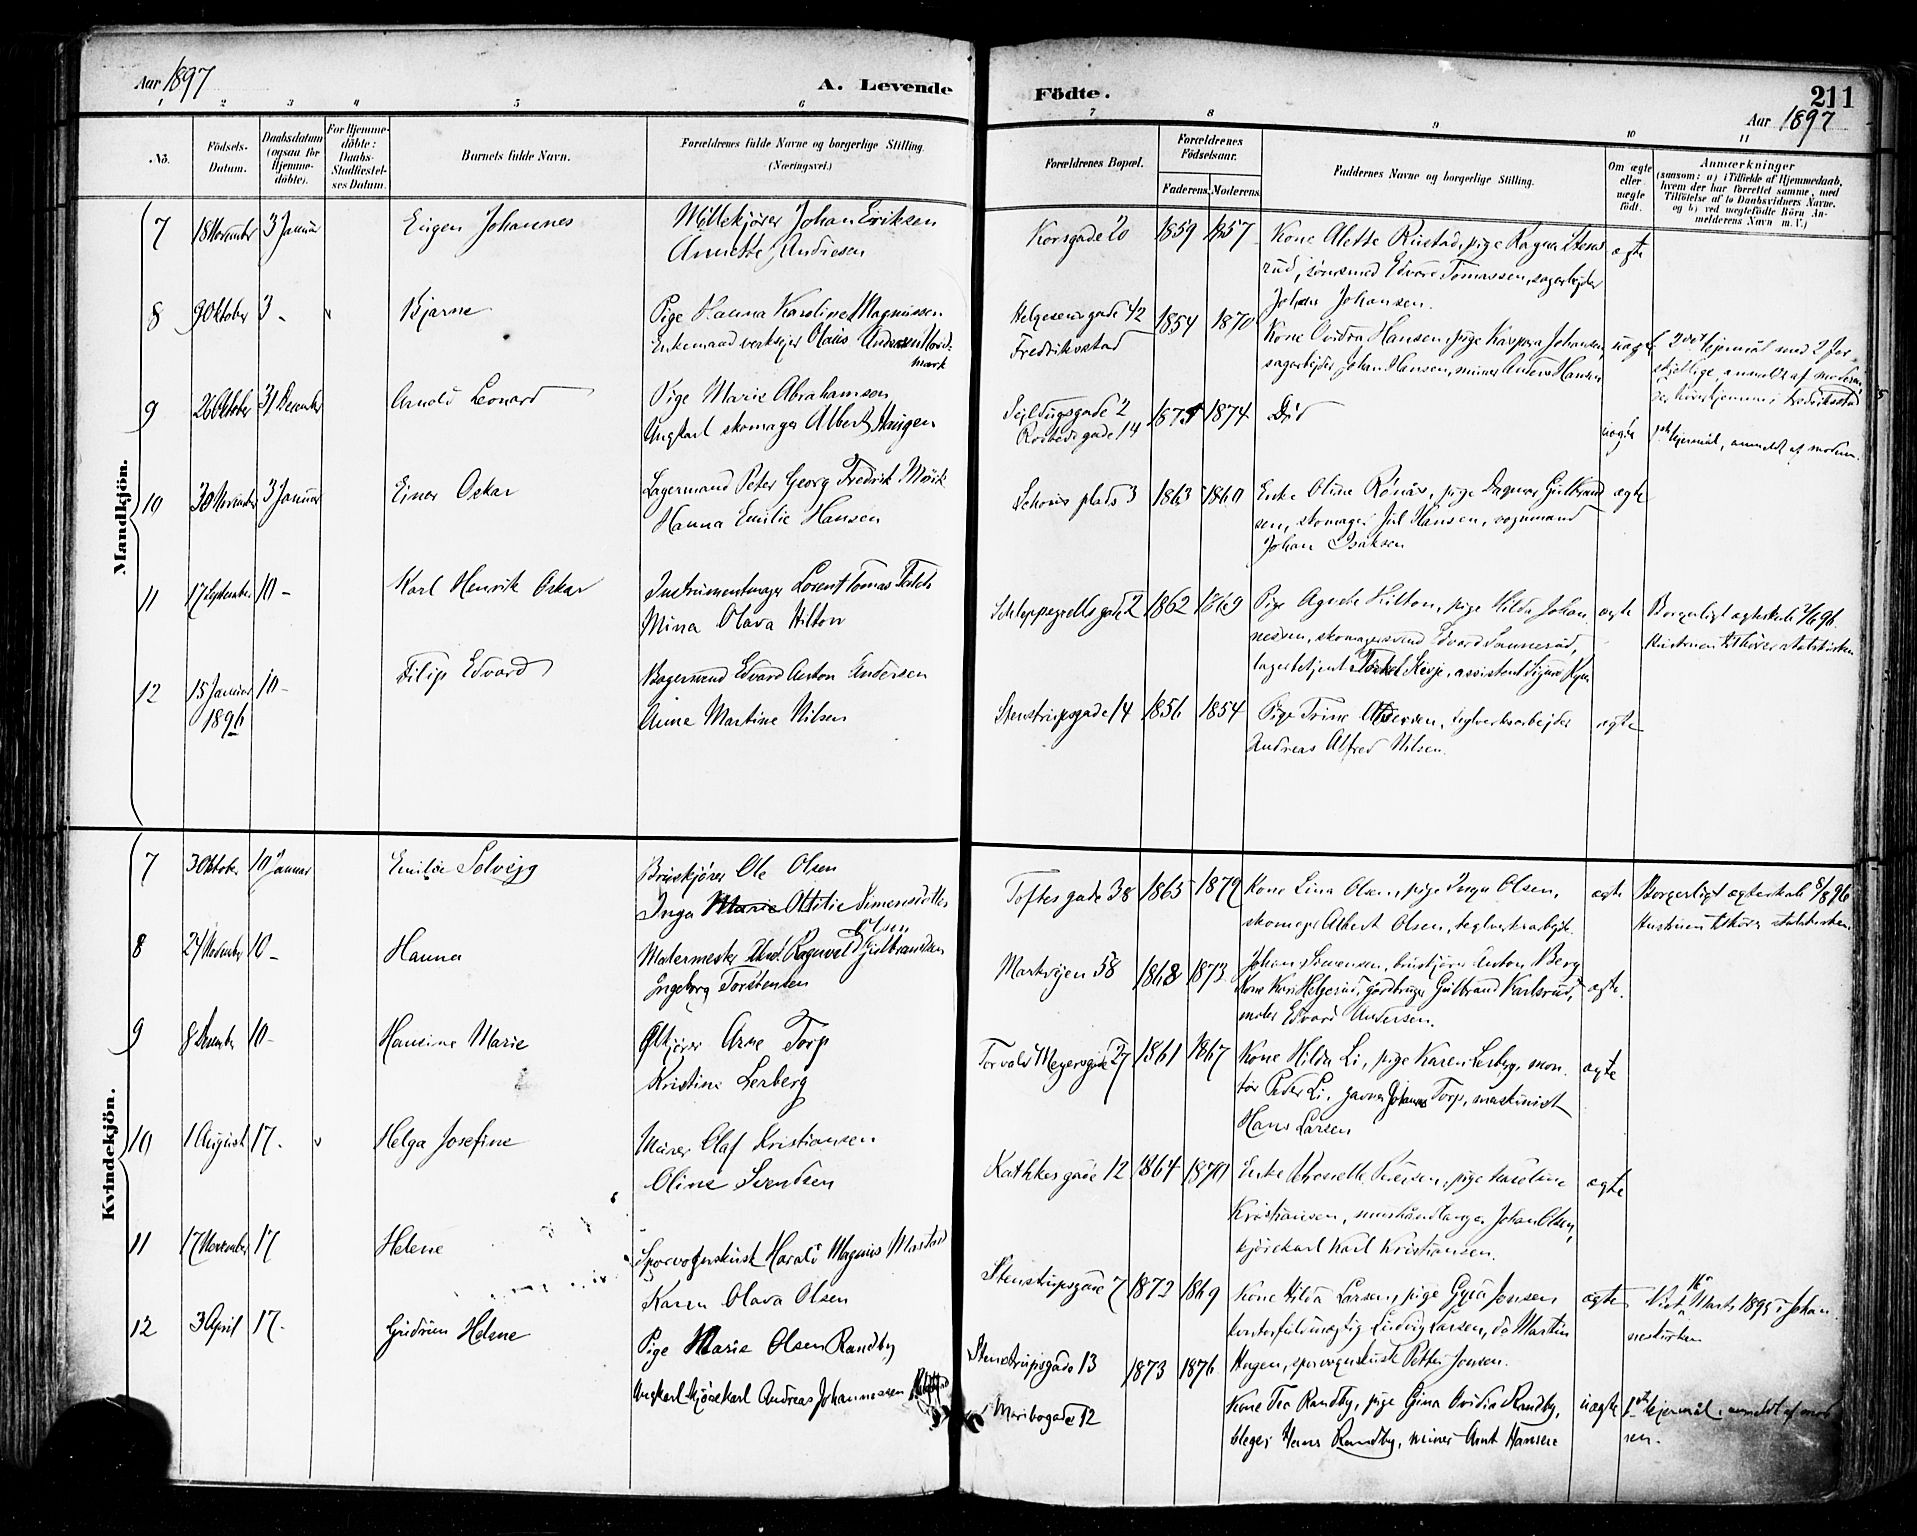 Aar 1897
A. Levende
Födte.
211
Aar 1897
1 2 3 4 5 6 7 8 9 10 11
No.
Födsels-Datum.
Daabsdatum (ogsaa for Hjemme-döbte).
For Hjemme-döbte: Daabs-Stadfæstel-ses Datum.
Barnets fulde Navn.
Forældrenes fulde Navne og borgerlige Stilling. (Næringsvei.)
Forældrenes Bopæl.
Forældrenes Födselsaar.
Faderens. Moderens.
Faddernes Navne og borgerlige Stilling.
Om ægte eller uægte födt.
Anmærkninger
(saasom: a) i Tilfælde af Hjemmedaab, hvem der har forrettet samme, med Tilföielse af to Daabsvidners Navne, og b) ved uegtefödte Börn An-melderens Navn m. V.)
Mandkjön.
7 18 November 3 Januar Eugen Johannes
Johan Eriksen
Annette Andresen
Korsgade 20 1859 1857
Kone Alette Rustad, pige Ragna
rud, Edvard Tomassen, sagarbejder
Johan Johansen.
ægte
8 9 Oktober 3 - Bjarne
Pige Hanna Karoline Magnussen
Enkemand verksejer Olaus Andersen Nord-
mark
Helgesensgade 42
Fredriksstad
1854 1870
Kone Ovidia Hansen, pige Kaspara Johansen,
sagarbejder Johan Hansen, murer Anders Hansen
uægte
2det lejermål med 2 for-
skjellige, anmeldt af moderen
9 26 Oktober 31 December Arnold Leonard
Pige Marie Abrahamsen
Ungkarl skomager Albert Haugen
Sejldugsgade 2
14
1874
Død
uægte
lejermål, anmeldt af moderen.
10 30 November 3 Januar Einar Oskar
Lagermand Peter Georg Fredrik Mörik
Hanna Emilie Hansen
Schous plads 3 1863 1860
Enke Oline Rönås, pige Dagmar Gulbrand
sen, skomager Jul Hansen, vognmand
Johan Isaksen
ægte
11 17 September 10 - Karl Henrik Oskar
Instrumentmager Lorent Tomas
Mina Olava Hilton
Schleppegrellsgade 2 1862 1869
Pige Agnete Hilton, pige Hilda Johan
nesen, skomagersvend Edvard
lagerbetjent Torkel assistent Sigurd
ægte
Borgerligt ægteskab
Hustruen tilhörer statskirken
12 15 Januar 1896 10 - Filip Edvard
Bagersvend Edvard Anton Andersen
Anne Martine Nilsen
Stenstrupsgade 14 1856 1854
Pige Trine teglverksarbejder
Andreas Alfred Nilsen.
ægte
Kvindekjön.
7 3 Oktober 10 Januar Emilie Solvejg
Bruskjörer Ole Olsen
Inga Marie Ottilie Simensdatter
Olsen
Toftesgade 38 1865 1879
Kone Lina Olsen, pige Inga Olsen,
skomager Albert Olsen, teglverksarbejd.
Johan bruskjörer Anton Berg
ægte
Borgerligt ægteskab 5/8 96
Hustruen tilhörer statskirken
8 24 November 10 - Hanna
Malermester Ragnvald Gulbrandsen
Ingeborg Torstensen
Markvejen 58 1868 1873
Kone Kari gårdbruger Gulbrand Karlsrud,
maler Edvard Andersen.
ægte.
9 8 December 10 - Hansine Marie
Ölkjörer Arne Torp
Kristine Lerberg
Torvald Meyersgade 27 1861 1867
Kone Hilda Li, pige Karen Lerberg, mon
tör Peder Li, Johannes Torp, maskinist
Hans Larsen
ægte
10 1 August 17 - Helga Josefine
Murer Olaf Kristiansen
Oline Svendsen
Rathkesgade 12 1864 1870
Enke pige Haseline
Kristiansen, murhåndlanger Johan Olsen,
kjörekarl Karl Kristiansen.
ægte
11 17 November 17 Helene
Sporvognskusk Harald Magnus
Karen Olava Olsen
Stenstrupsgade 7 1872 1869
Kone Hilda Larsen, pige Gyda Jensen
kontorfuldmægtig Ludvig Larsen, do Martin
Hagen, sporvognskusk Petter Jensen.
ægte
Viet 16 Marts 1895 i Johan
neskirken
12 3 April 17 - Gudrun Helene
Pige Marie Olsen Randby
Ungkarl kjörekarl Andreas Johannessen
Stenstrupsgade 13
Maribogade 12
1873 1876
Kone Tea Randby, pige Gina Ovidia Randby,
Hans Randby, murer Arnt Hansen
uægte
lejermål, anmeldt af mode
ren.